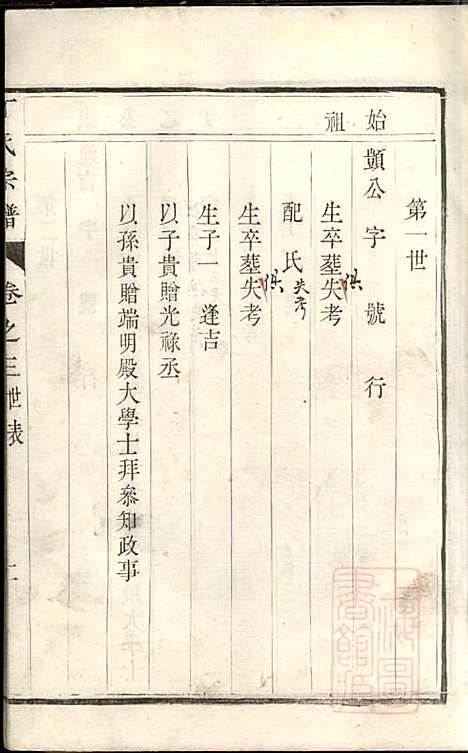 始祖
第一世
顗公字 號 行
生卒塟俱失考
配 氏失考
生卒塟俱失考
生子一 逢吉
以子貴贈光祿丞
以孫貴贈端明殿大學士拜叅知政事
氏宗譜 卷之三世表